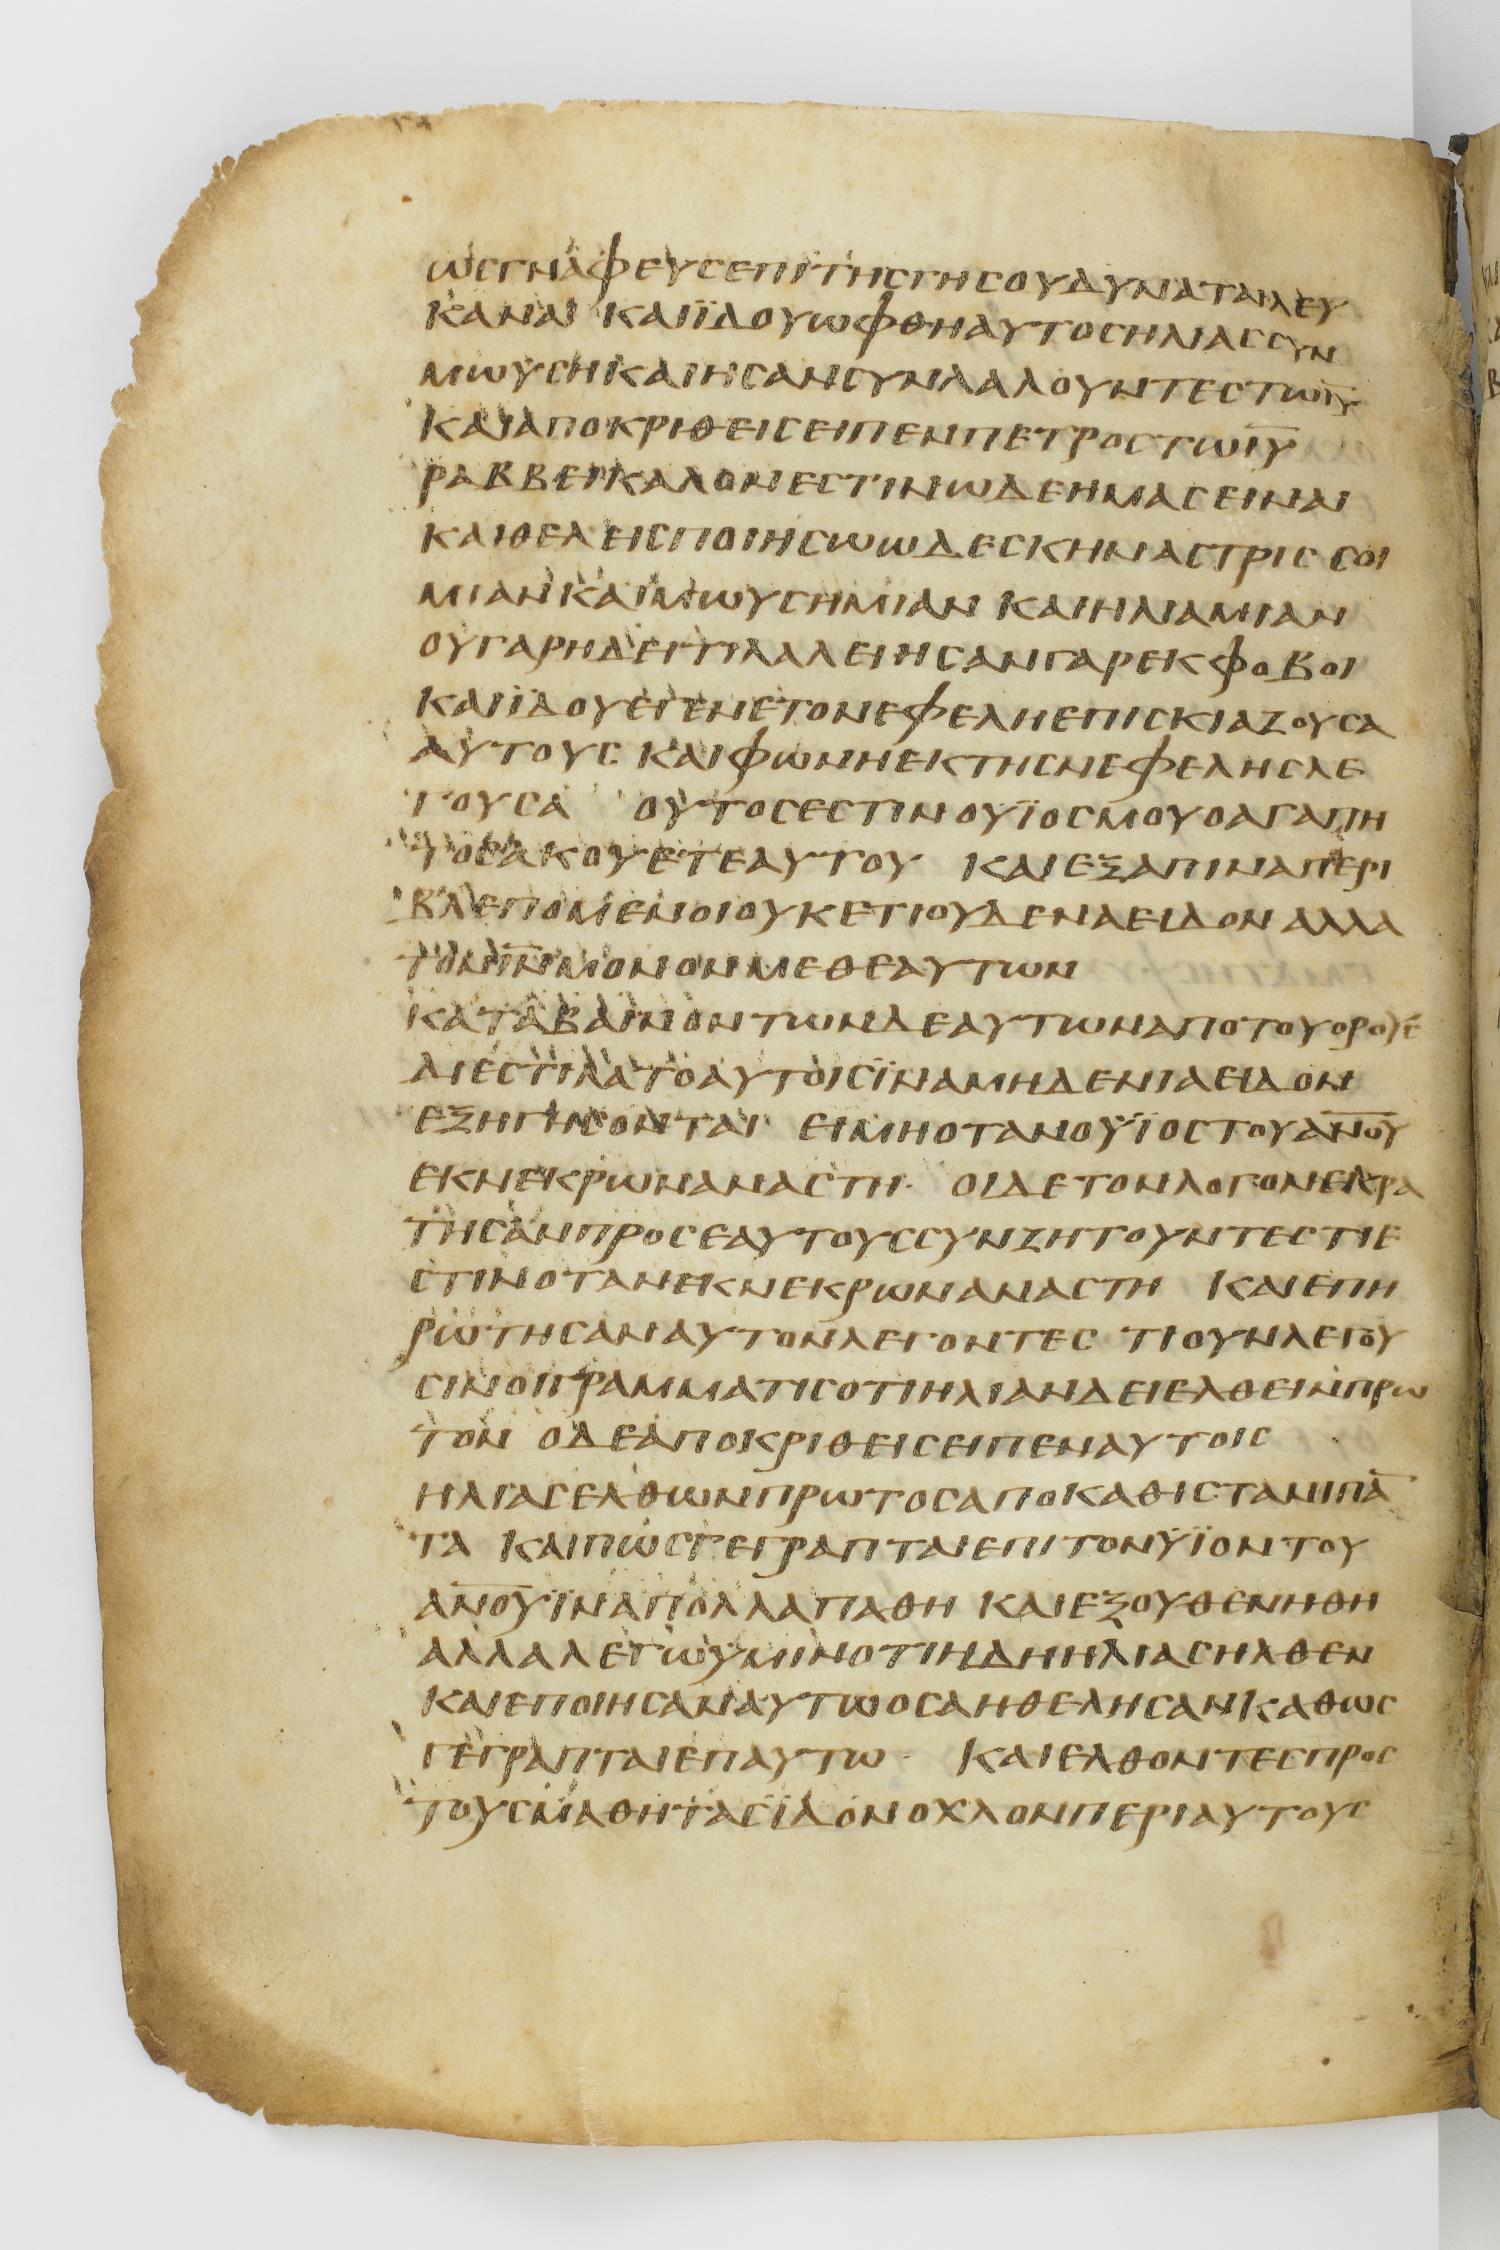 ωσγναφευσεπιτησγησουδυναταιλευ
καναι καιϊδουωφθηαυτοσηλιασσυν
μωυσηκαιησανσυνλαλουντεστωιυ̅
καιαποκριθεισειπενπετροστωιυ̅
ραββεικαλονεστινωδεημασειναι
καιθελεισποιησωωδεσκηναστρισσοι
μιανκαιμωυσημιαν καιηλιαμιαν
ουγαρηδειτιλαλειησανγαρεκφοβοι
καιϊδουεγενετονεφεληεπισκιαζουσα
αυτουσ καιφωνηεκτησνεφελησλε
γουσα ουτοσεστινουϊοσμουοαγαπη
τοσακουετεαυτου καιεξαπιναπερι
βλεπομενοιουκετιουδεναειδοναλλα
τονιν̅μονονμεθεαυτων
καταβαινοντωνδεαυτωναποτουορουσ
διεστιλατοαυτοισϊναμηδενιαειδον
εξηγησονται ειμηοτανουϊοστουανου̅
εκνεκρωναναστη· οιδετονλογονεκρα
τησανπροσεαυτουσσυνζητουντεστιε
στινοτανεκνεκρωναναστη καιεπη
ρωτησαναυτονλεγοντεσ τιουνλεγου
σινοιγραμματισοτιηλιανδειελθεινπρω
τον οδεαποκριθεισειπεναυτοισ
ηλιασελθωνπρωτοσαποκαθιστανιπα̅
τα καιπωσγεγραπταιεπιτονυϊοντου
ανου̅ϊναπολλαπαθη καιεξουθενηθη
αλλαλεγωυμινοτιηδηηλιασηλθεν
καιεποιησαναυτωοσαηθελησανκαθωσ
γεγραπταιεπαυτω· καιελθοντεσπροσ
τουσμαθητασϊδονοχλονπεριαυτουσ